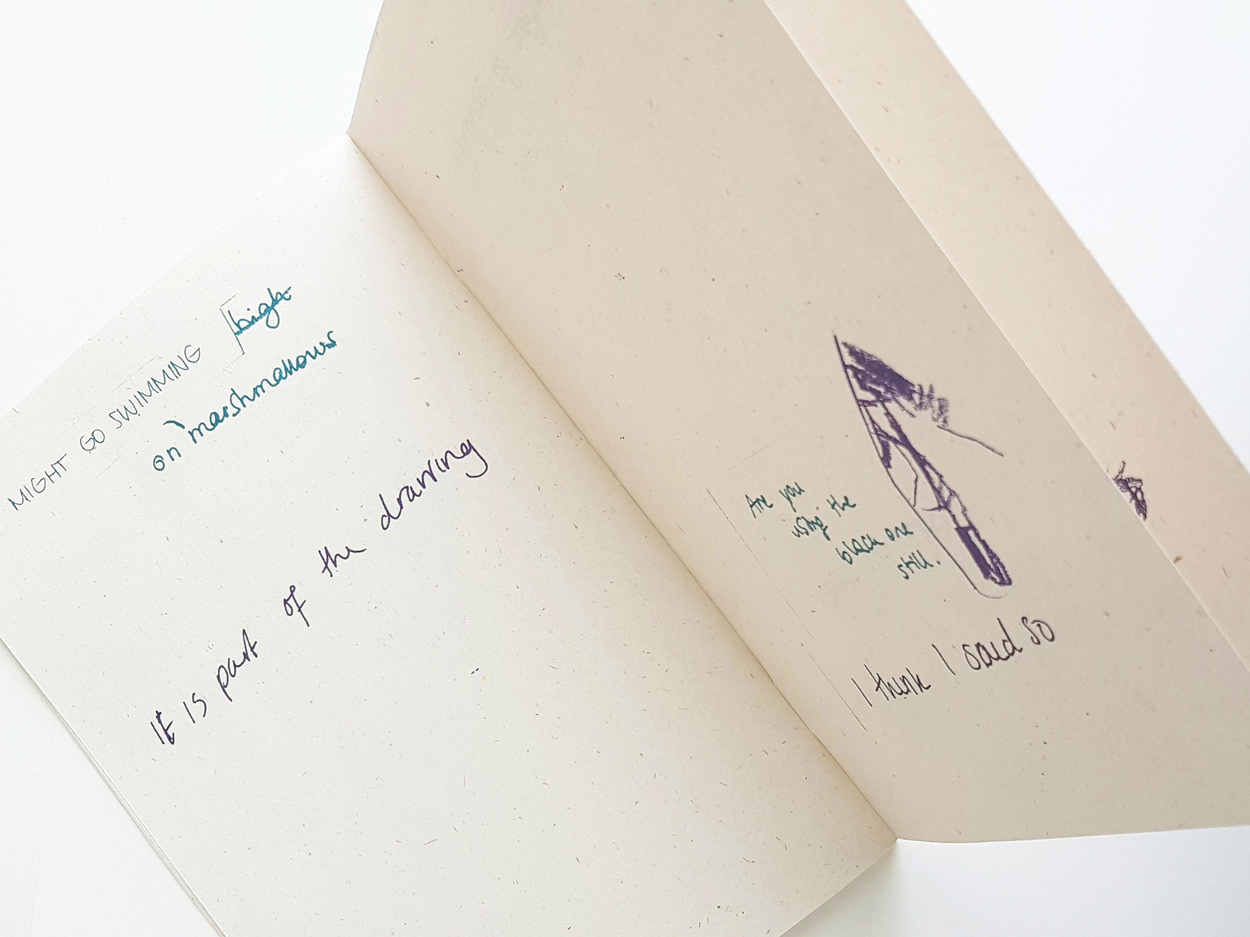 MIGHT GO SWIMMING high
on marshmallows
It is part of the drawing
Are you
using the
black one
still.
I think I said so